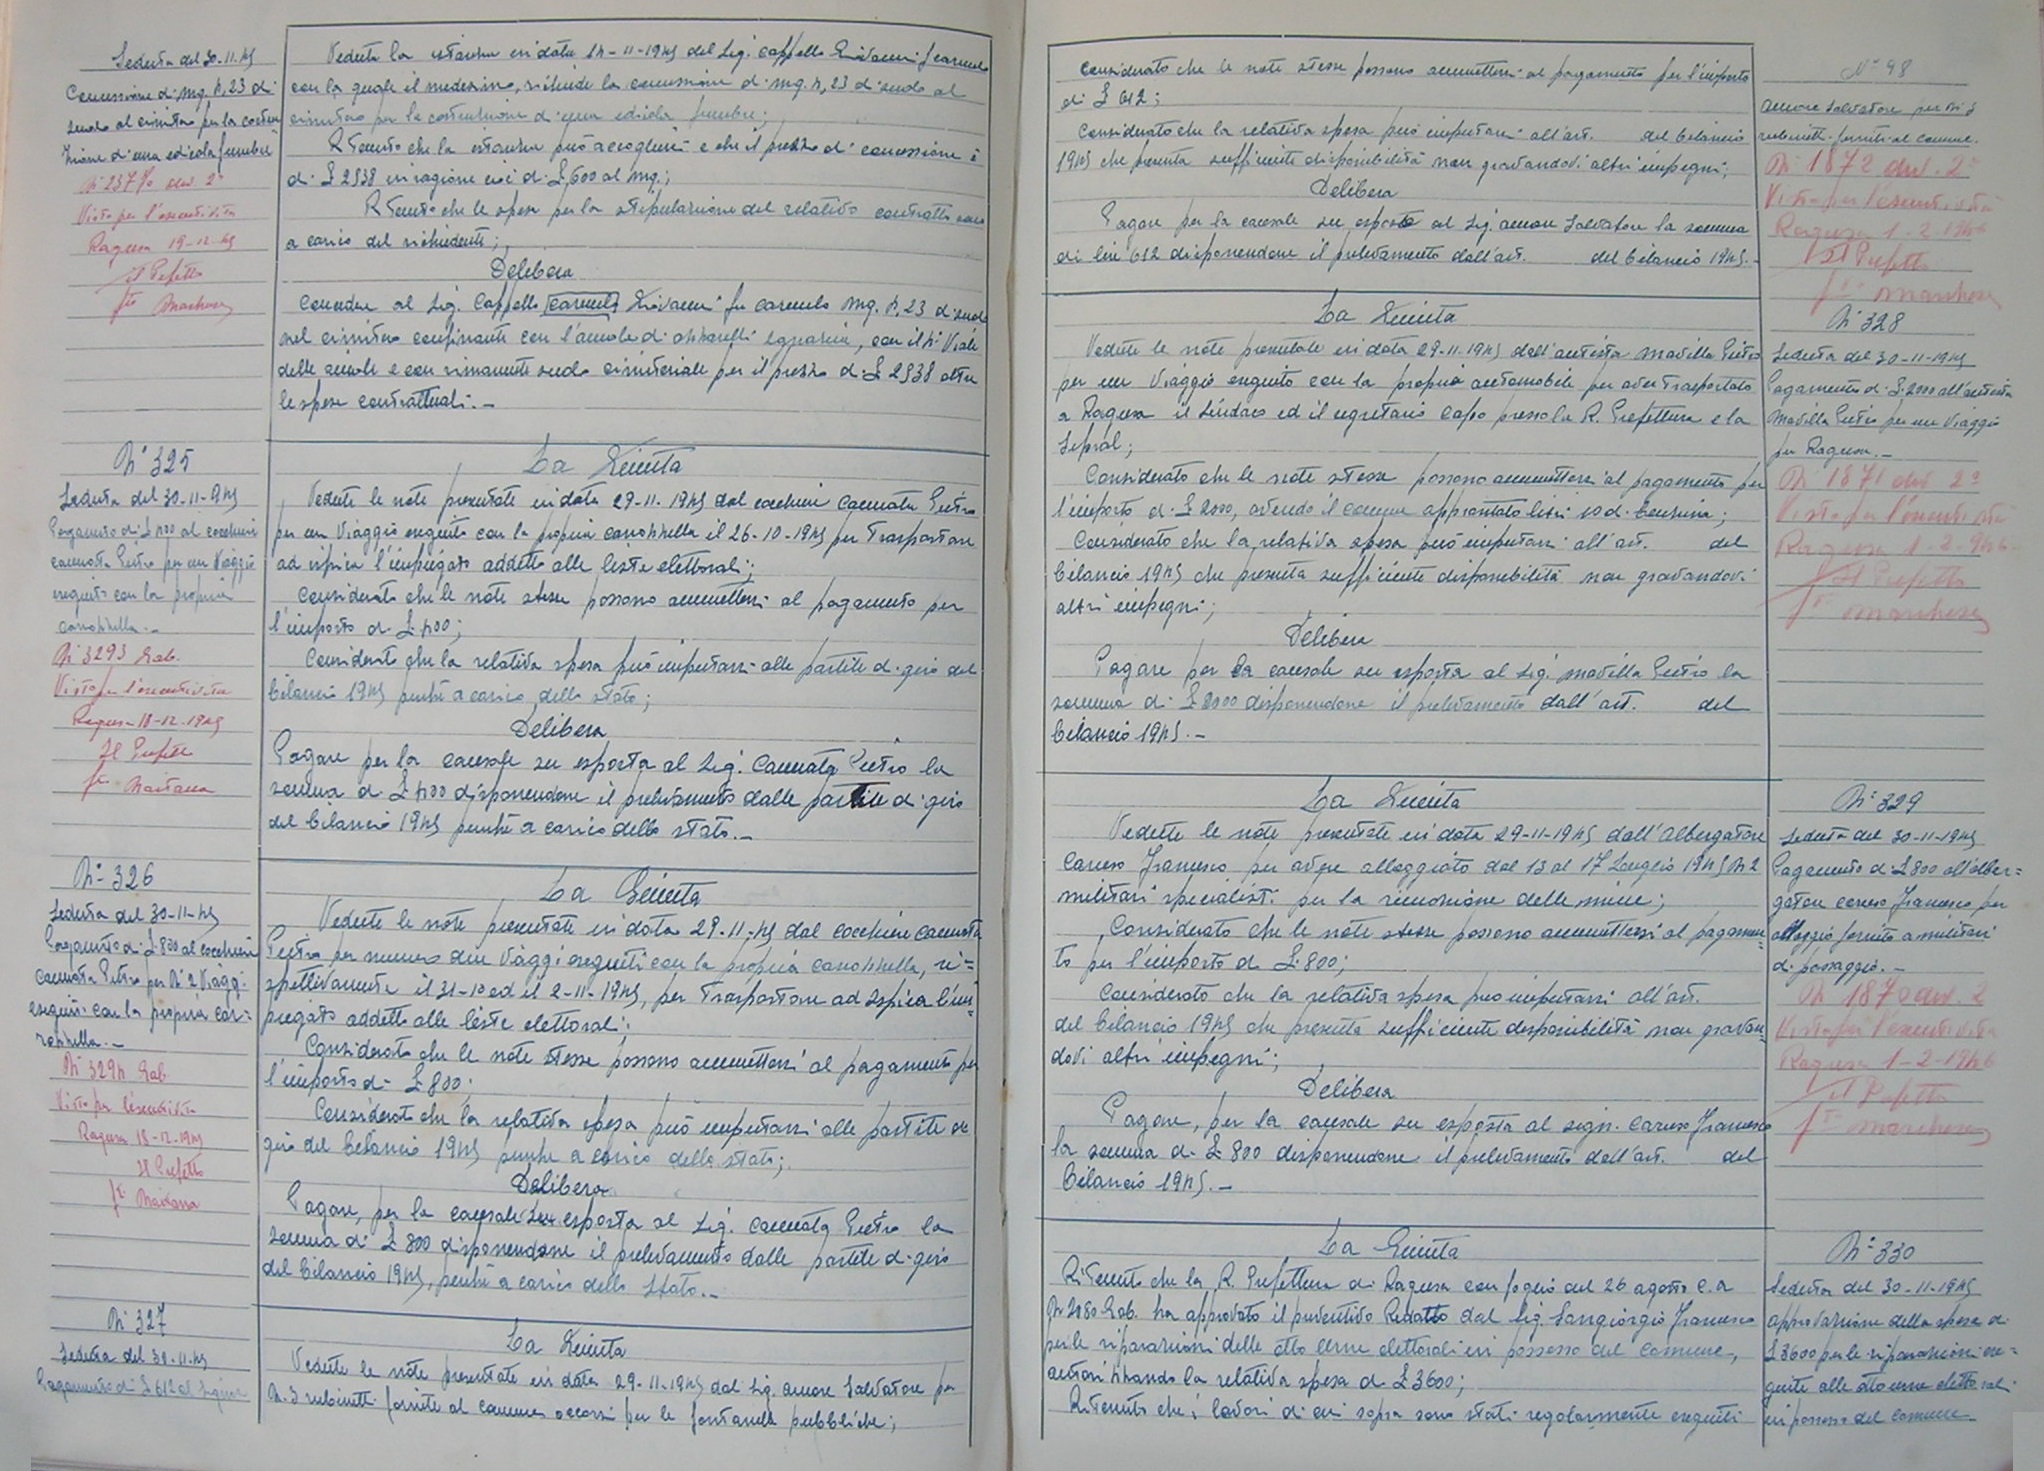 Seduta del 30-11-45
Concessione di mq. 4,23 di
suolo al cimitero per la costru
zione di una edicola funebre
N° 23770 div. 2ª
Visto per l'esecutività
Ragusa 19-12-45
Il Prefetto
fto
Veduta la istanza in data 14-11-1945 del Sig. Cappello Giovanni fu Carmelo
con la quale il medesimo, richiede la concessione di mq. 4,23 di suolo al
cimitero per la costruzione di una edicola funebre;
Ritenuto che la istanza può accogliersi e che il prezzo di concessione è
di £ 2538 in ragione cioè di £ 600 al mq.;
Ritenuto che le spese per la stipulazione del relativo contratto sono
a carico del richiedente;
Delibera
Concedere al Sig. Cappello Carmelo Giovanni fu Carmelo mq. 4,23 di suolo
nel cimitero confinante con l'aiuola di Ignazia, con il Viale
delle aiuole e con rimanente suolo cimiteriale per il prezzo di £ 2538 oltre
le spese contrattuali.-
N° 325
Seduta del 30-11-945
Pagamento di £ 400 al cocchiere
Cannata Pietro per un Viaggio
eseguito con la propria
carrozzella.-
N° 3293 Gab.
Visto per l'esecutività
Ragusa 18-12-1945
Il Prefetto
fto
La Giunta
Vedute le note presentate in data 29-11-1945 dal cocchiere Cannata Pietro
per un Viaggio eseguito con la propria carrozzella il 26-10-1945 per Trasportare
ad ispica l'impiegato addetto alle liste elettorali;
Considerato che le note stesse possono ammettersi al pagamento per
l'importo di £ 400;
Considerato che la relativa spesa può imputarsi alle partite di giro del
bilancio 1945 perché a carico dello stato;
Delibera
Pagare per la causale su esposta al Sig. Cannata Pietro la
somma di £ 400 disponendone il prelevamento dalle partite di giro
del bilancio 1945 perché a carico dello stato.-
N° 326
Seduta del 30-11-45
Pagamento di £ 800 al cocchiere
Cannata Pietro per N° 2 Viaggi
eseguiti con la propria car=
rozzella.-
N° 3294 Gab.
Visto per l'esecutività
Ragusa 18-12-1945
Il Prefetto
fto
La Giunta
Vedute le note presentate in data 29-11-45 dal cocchiere Cannata
Pietro per numero due Viaggi eseguiti con la propria carrozzella, ri=
spettivamente il 31-10 ed il 2-11-1945, per Trasportare ad Ispica l'im=
piegato addetto alle liste elettorali;
Considerato che le note stesse possono ammettersi al pagamento per
l'importo di £ 800;
Considerato che la relativa spesa può imputarsi alle partite di
giro del bilancio 1945 perché a carico dello stato;
Delibera
Pagare, per la causale su esposta al Sig. Cannata Pietro la
somma di £ 800 disponendone il prelevamento dalle partite di giro
del bilancio 1945, perché a carico dello Stato.-
N° 327
Seduta del 30-11-45
Pagamento di £ 612 al Signor
La Giunta
Vedute le note presentate in data 29-11-1945 dal Sig. Amore Salvatore per
N. 3 rubinetti fornite al comune occorsi per le fontanelle pubbliche;
Considerato che le note stesse possono ammettersi al pagamento per l'importo
di £ 612;
Considerato che la relativa spesa può imputarsi all'art. del bilancio
1945 che presenta sufficiente disponibilità non gravandovi altri impegni;
Delibera
Pagare per la causale su esposta al Sig. Amore Salvatore la somma
di lire 612 disponendone il prelevamento dall'art. del bilancio 1945.-
N° 98
Amore Salvatore per N° 3
rubinetti forniti al comune.
N° 1872 div. 2ª
Visto per l'esecutività
Ragusa 1-2-1946
Il Prefetto
fto Marchese
La Giunta
Vedute le note presentate in data 29-11-1945 dall'autista Modilla Pietro
per un Viaggio eseguito con la propria automobile per aver Trasportato
a Ragusa il Sindaco ed il segretario capo presso la R. Prefettura e la
Sepral;
Considerato che le note stesse possono ammettersi al pagamento per
l'importo di £ 2000, avendo il comune approntato litri 10 di benzina;
Considerato che la relativa spesa può imputarsi all'art. del
bilancio 1945 che presenta sufficiente disponibilità non gravandovi
altri impegni;
Delibera
Pagare per la causale su esposta al Sig. Modilla Pietro la
somma di £ 2000 disponendone il prelevamento dall'art. del
bilancio 1945.-
N° 328
Seduta del 30-11-1945
Pagamento di £ 2000 all'autista
Modilla Pietro per un Viaggio
per Ragusa.-
N° 1871 div 2ª
Visto per l'esecutività
Ragusa 1-2-946
Il Prefetto
fto Marchese
La Giunta
Vedute le note presentate in data 29-11-1945 dall'Albergatore
Caruso Francesco per avere alloggiato dal 13 al 17 Luglio 1945 N° 2
militari specialisti per la rimozione delle mine;
Considerato che le note stesse possono ammettersi al pagamen=
to per l'importo di £ 800;
Considerato che la relativa spesa può imputarsi all'art.
del bilancio 1945 che presenta sufficiente disponibilità non gravan=
dovi altri impegni;
Delibera
Pagare, per la causale su esposta al sign. Caruso Francesco
la somma di £ 800 disponendone il prelevamento dall'art. del
bilancio 1945.-
N° 329
Seduta del 30-11-1945
Pagamento di £ 800 all'alber=
gatore Caruso Francesco per
alloggio fornito a militari
di passaggio.-
N° 1870 div. 2
Visto per l'esecutività
Ragusa 1-2-1946
Il Prefetto
fto Marchese
La Giunta
Ritenuto che la R. Prefettura di Ragusa con foglio del 26 agosto c.a
N° 2080 Gab. ha approvato il preventivo Redatto dal Sig. Sangiorgio Francesco
per le riparazioni delle otto urne elettorali in possesso del comune,
autorizzando la relativa spesa di £ 3600;
Ritenuto che i lavori di cui sopra sono stati regolarmente eseguiti
N° 330
Seduta del 30-11-1945
approvazione della spesa di
£ 3600 per le riparazioni ese=
guite alle otto urne elettorali
in possesso del comune